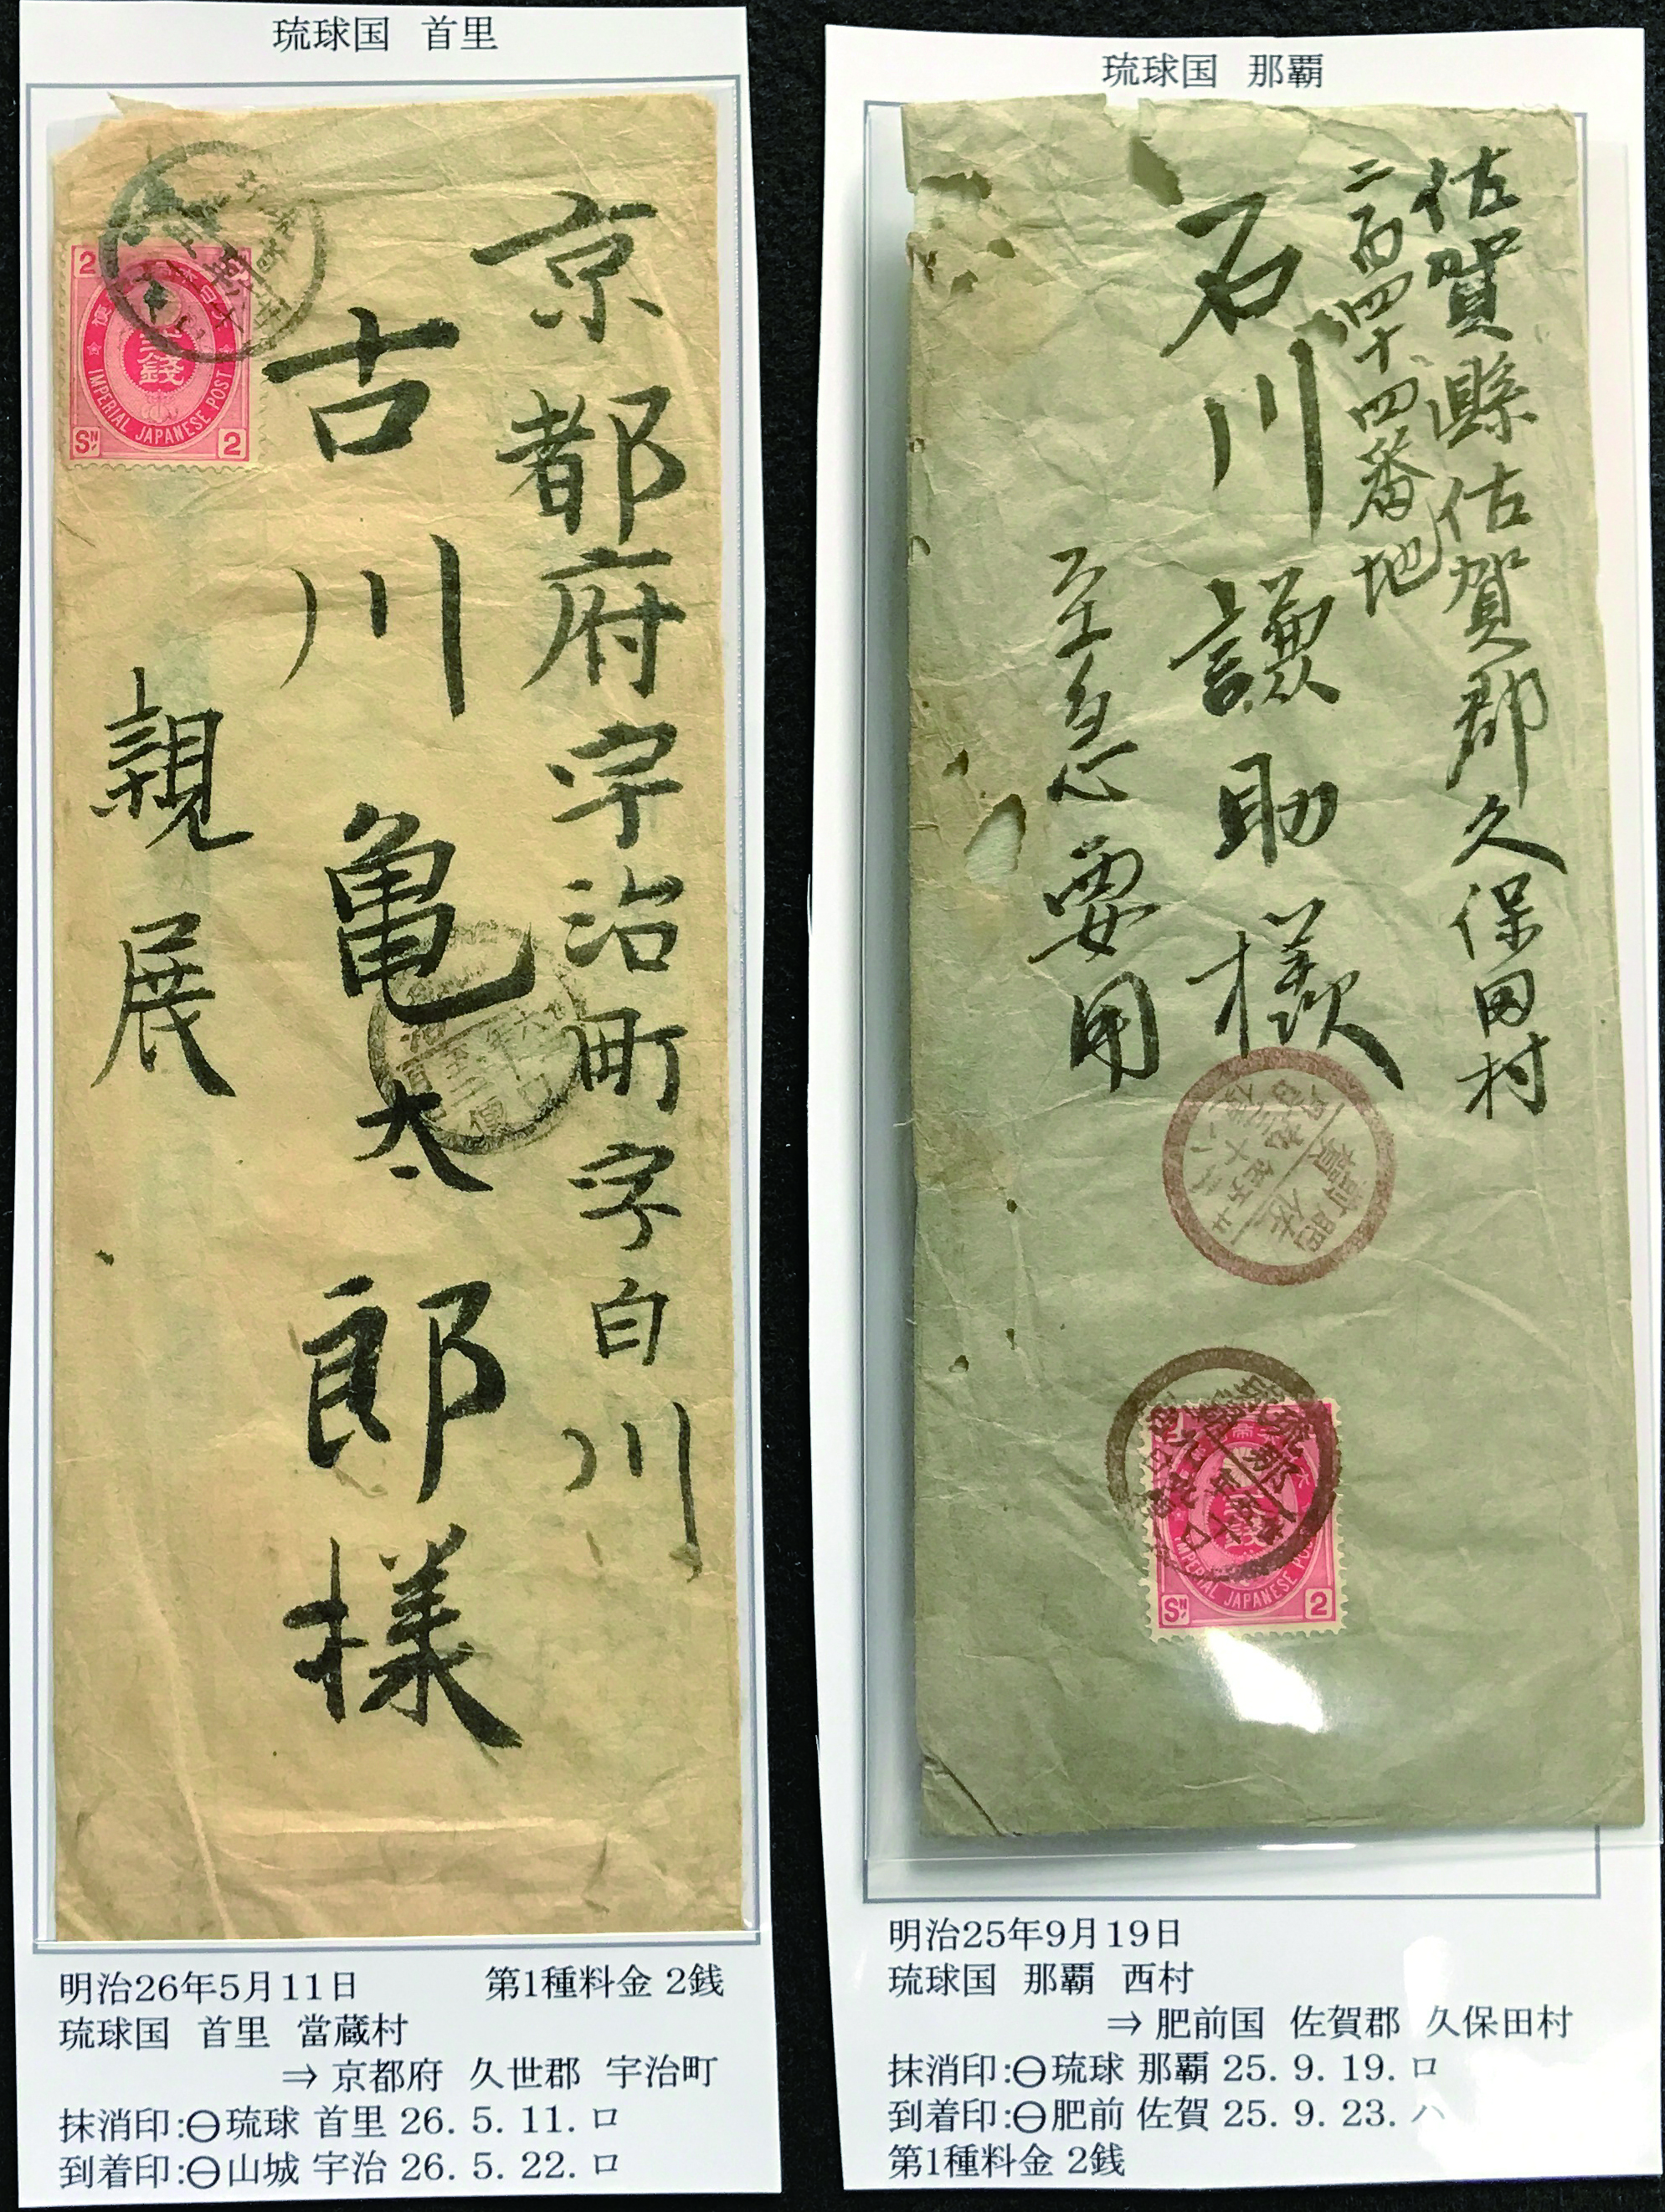 琉球国 首里
京都府宇治町字白川
古川亀太郎様
親展
2
弐銭
IMPERIAL JAPANESE POST
SN 2
明治26年5月11日 第1種料金 2銭
琉球国 首里 當蔵村
⇒ 京都府 久世郡 宇治町
抹消印:⊖琉球 首里 26. 5. 11. ロ
到着印:⊖山城 宇治 26. 5. 22. ロ
琉球国 那覇
佐賀縣佐賀郡久保田村
二百四十四番地
石川謙助様
至急要用
IMPERIAL JAPANESE POST
SN 2
明治25年9月19日
琉球国 那覇 西村
⇒ 肥前国 佐賀郡 久保田村
抹消印:⊖琉球 那覇 25. 9. 19. ロ
到着印:⊖肥前 佐賀 25. 9. 23. ハ
第1種料金 2銭